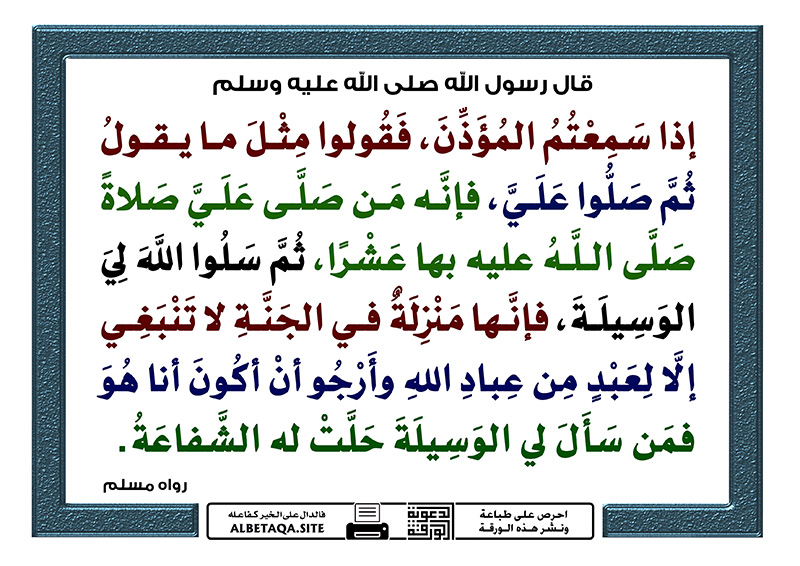 قال رسول الله صلى الله عليه وسلم
إذا سَمِعْتُمُ المُؤَذِّنَ، فَقُولوا مِثْلَ ما يـقـولُ
ثُمَّ صَلُّوا عَلَيَّ، فإنَّه مَن صَلَّى عَلَيَّ صَلاةً
صَلَّى اللَّهُ عليه بها عَشْرًا، ثُمَّ سَلُوا اللَّهَ لِيَ
الوَسِيلَةَ، فإنَّها مَنْزِلَةٌ في الجَنَّةِ لا تَنْبَغِي
إلَّا لِعَبْدٍ مِن عِبادِ اللهِ وأَرْجُو أنْ أكُونَ أنا هُوَ
فمَن سَأَلَ لي الوَسِيلَةَ حَلَّتْ له الشَّفاعَةُ.
رواه مسلم
احرص على طباعة
ونشر هذه الورقة
الدعوية
الورقة
فالدال على الخير كفاعله
ALBETAQA.SITE